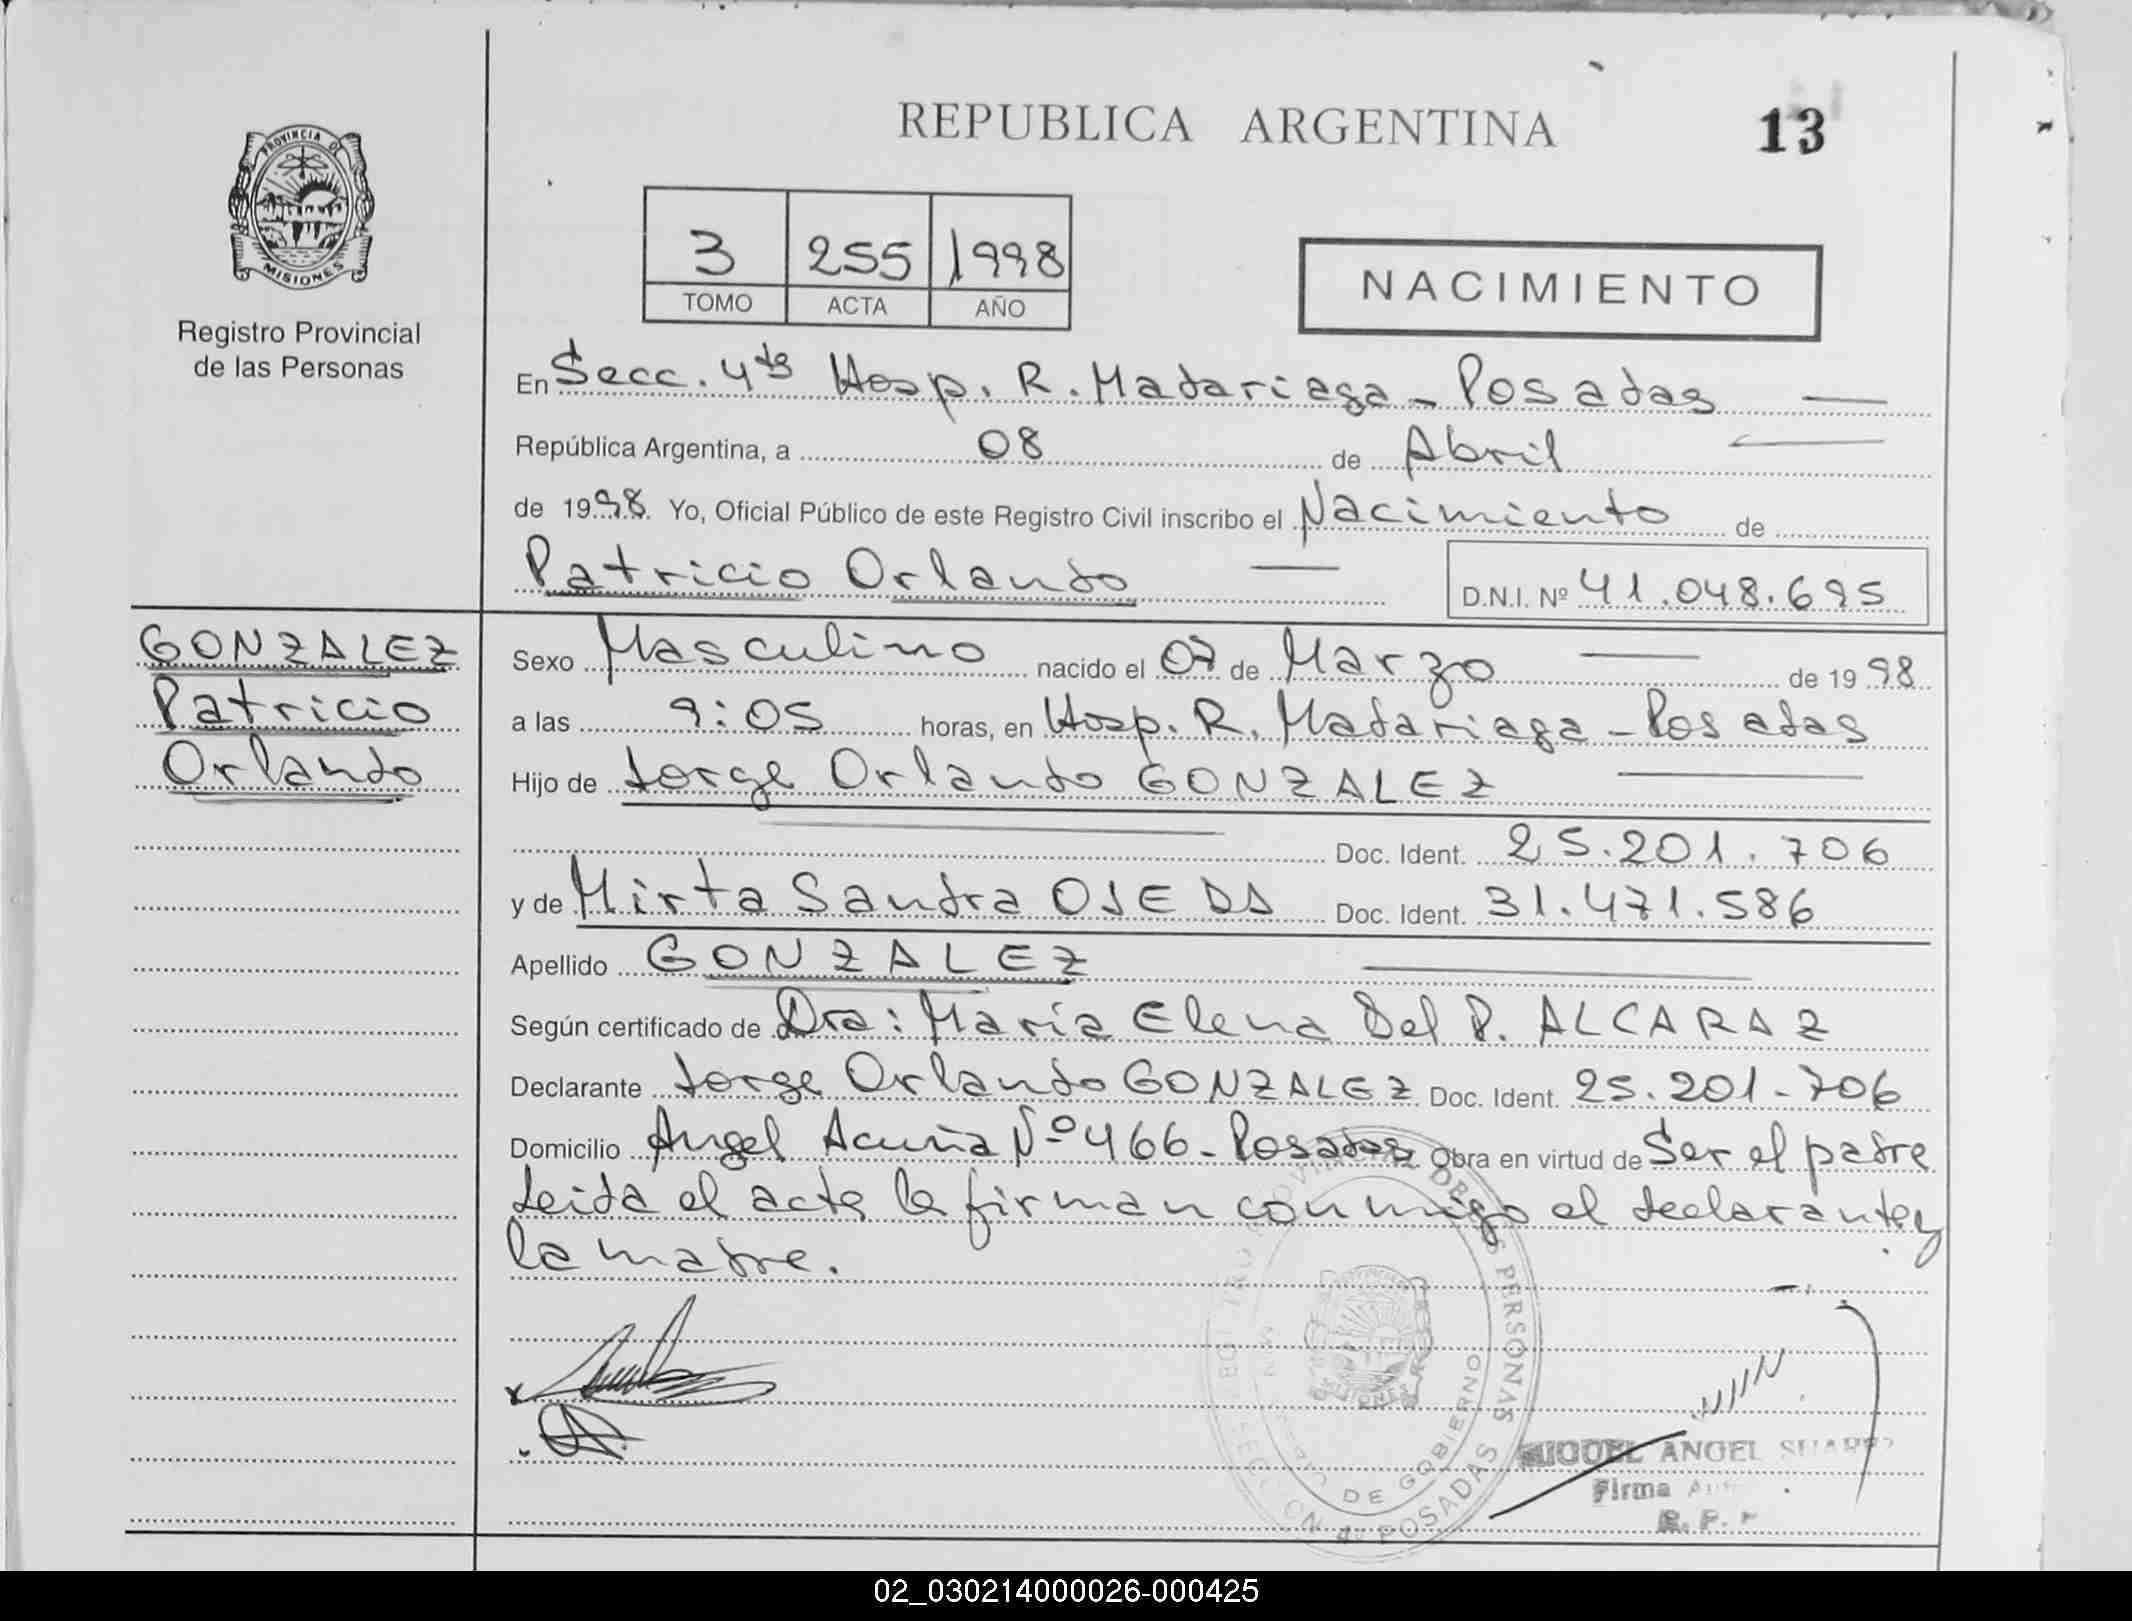 REPUBLICA ARGENTINA
13
PROVINCIA DE
MISIONES
Registro Provincial
de las Personas
3 255 1998
TOMO ACTA AÑO
NACIMIENTO
En Secc. 4ta Hosp. R. Madariaga - Posadas
República Argentina, a 08 de Abril
de 1998. Yo, Oficial Público de este Registro Civil inscribo el Nacimiento de
Patricio Orlando
D.N.I. Nº 41.048.695
GONZALEZ
Patricio
Orlando
Sexo Masculino nacido el 07 de Marzo de 1998
a las 9:05 horas, en Hosp. R. Madariaga - Posadas
Hijo de Jorge Orlando GONZALEZ
Doc. Ident. 25.201.706
y de Mirta Sandra OJEDA Doc. Ident. 31.471.586
Apellido GONZALEZ
Según certificado de Dra: María Elena Del P. ALCARAZ
Declarante Jorge Orlando GONZALEZ Doc. Ident. 25.201.706
Domicilio Angel Acuña Nº 466 - Posadas Obra en virtud de Ser el padre
Leida el acta la firman conmigo el declarante y
la madre.
DE LAS PERSONAS
DE GOBIERNO
POSADAS
MIGUEL ANGEL SUAREZ
Firma
R. P.
02_030214000026-000425